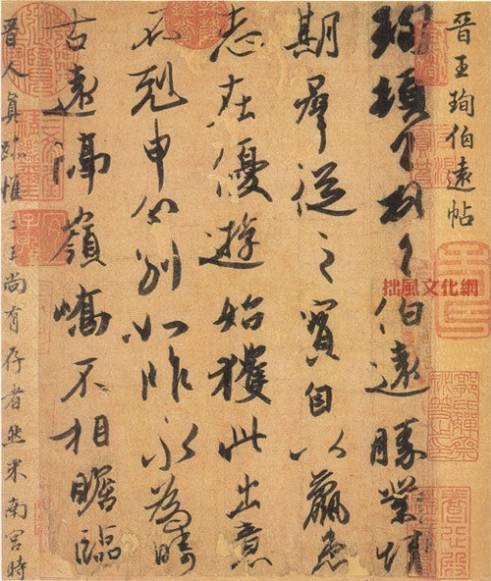 晉王珣伯遠帖
珣頓首頓首伯遠勝業情
期羣從之寶自以羸患
志在優遊始獲此出意
不剋申分別如昨永為疇
古遠隔嶺嶠不相瞻臨
晉人真跡惟二王尚有存者然米南宮時
拙風文化網